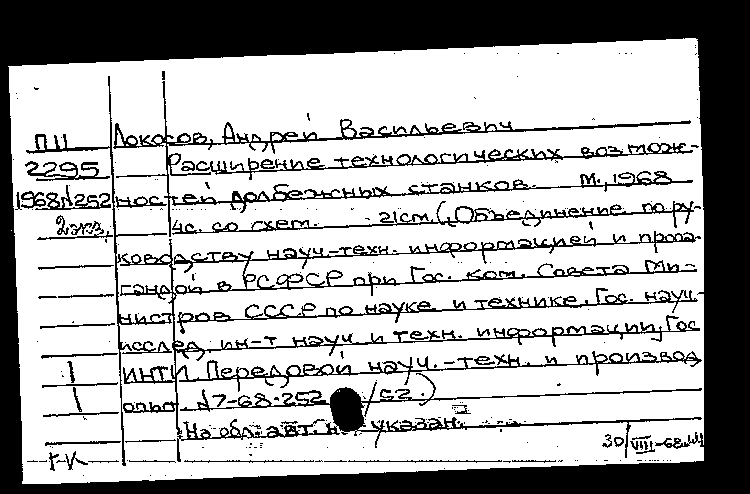 П11 Локосов, Андрей Васильевич
2295 Расширение технологических возмож-
1968 N252 ностей долбежных станков. М., 1968
2 экз. 4с. со схем. 21см. (Объединение по ру-
ководству науч.-техн. информацией и пропа-
гандой в РСФСР при Гос. ком. Совета Ми-
нистров СССР по науке и технике. Гос. науч.-
исслед. ин-т науч. и техн. информации, Гос
ИНТИ. Передовой науч.-техн. и производ
опыт. N7-68-252 /52)
На обл. авт. не указан.
30/VIII-68
Г-К